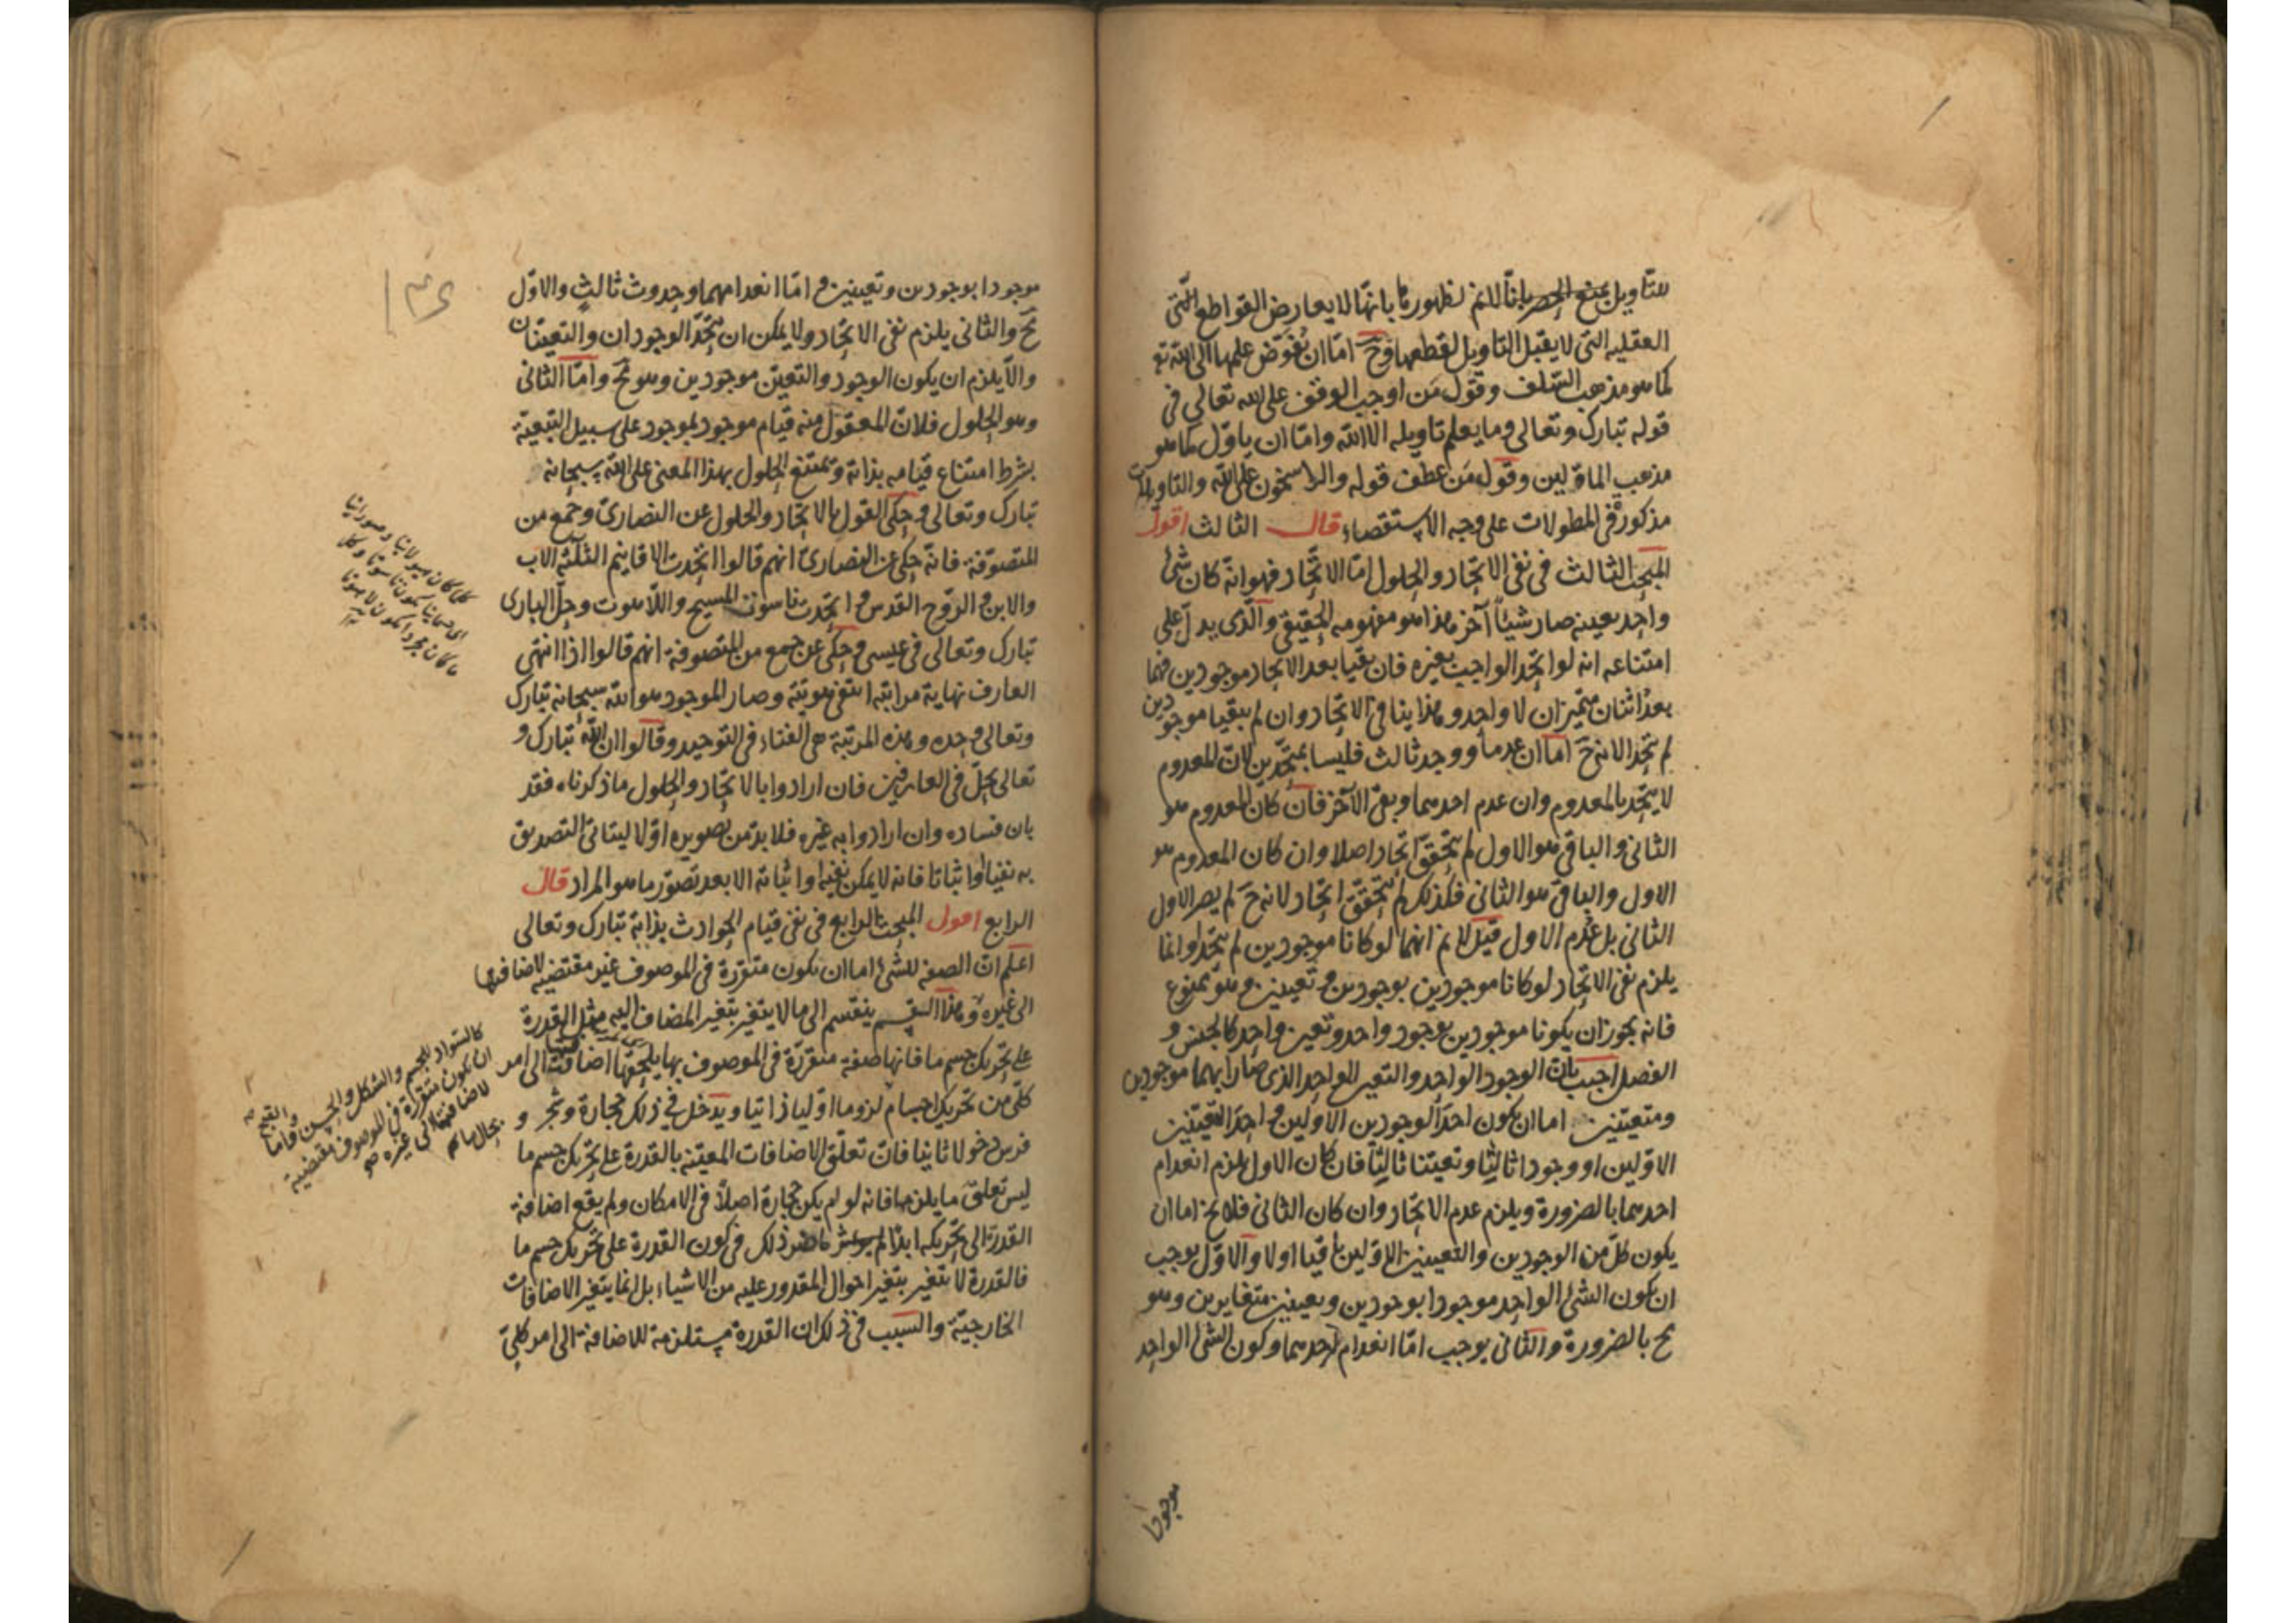 للتأويل بمنع الحصر بانا لانم لظهورها بانها لا يعارض القواطع التى
العقليه التى لا يقبل التاويل لقطعها وح اما ان نفوض علمها الى الله تع
كما هو مذهب السلف وقول من اوجب الوقف على الله تعالى فى
قوله تبارك وتعالى وما يعلم تاويله الا الله واما ان ياول كما هو
مذهب الماولين وقول من عطف قوله والراسخون على الله والتاويلات
مذكورة فى المطولات على وجه الاستقصاء قال الثالث اقول
المبحث الثالث فى نفى الاتحاد والحلول اما الاتحاد فهو انه كان شئ
واحد بعينه صار شيئا آخر هذا هو مفهومه الحقيقى والذى يدل على
امتناعه انه لو اتحد الواجب بغيره فان بقيا بعد الاتحاد موجودين فهما
بعد اثنان متميزان لا واحد وهذا ينافى الاتحاد وان لم يبقيا موجودين
لم يتحد الانه ح اما ان عدما ووجد ثالث فليسا بمتحدين لان المعدوم
لا يتحد بالمعدوم وان عدم احدهما وبقى الآخر فان كان المعدوم هو
الثانى والباقى هو الاول لم يتحقق اتحاد اصلا وان كان المعدوم هو
الاول والباقى هو الثانى فكذلك لم يتحقق اتحاد لانه ح لم يصر الاول
الثانى بل عدم الاول قيل لانم انهما لو كانا موجودين لم يتحدا وانما
يلزم نفى الاتحاد لو كانا موجودين بوجودين وتعينين وهو ممنوع
فانه يجوز ان يكونا موجودين بوجود واحد وتعين واحد كالجنس و
الفصل اجيب بان الوجود الواحد والتعين الواحد الذى صارا بهما موجودين
ومتعينين اما ان يكون احد الوجودين الاولين واحد التعينين
الاولين او وجودا ثالثا وتعينا ثالثا فان كان الاول يلزم انعدام
احدهما بالضرورة ويلزم عدم الاتحاد وان كان الثانى فلا يخ اما ان
يكون كل من الوجودين والتعينين الاولين باقيا او لا والاول يوجب
ان يكون الشئ الواحد موجودا بوجودين وبعينين متغايرين وهو
مح بالضرورة والثانى يوجب اما انعدام احدهما وكون الشئ الواحد
موجودا
موجودا بوجودين وتعينين واما انعدامهما وحدوث ثالث والاول
مح والثانى يلزم نفى الاتحاد ولا يمكن ان يتحد الوجودان والتعينان
والا يلزم ان يكون الوجود والتعين موجودين وهو مح واما الثانى
وهو الحلول فلان المعقول منه قيام موجود بموجود على سبيل التبعية
بشرط امتناع قيامه بذاته ويمتنع الحلول بهذا المعنى على الله سبحانه
تبارك وتعالى وحكى القول بالاتحاد والحلول عن النصارى وجمع من
المتصوفة فانه حكى عن النصارى انهم قالوا اتحدت الاقانيم الثلثة الاب
والابن والروح القدس واتحدت ناسوت المسيح واللاهوت وحل البارى
تبارك وتعالى فى عيسى وحكى عن جمع من المتصوفة انهم قالوا اذا انتهى
العارف نهاية مراتبه انتفى هويته وصار الموجود هو الله سبحانه تبارك
وتعالى وحده وهذه المرتبة هى الفناء فى التوحيد وقالوا ان الله تبارك و
تعالى يحل فى العارفين فان ارادوا بالاتحاد والحلول ما ذكرناه فقد
بان فساده وان ارادوا به غيره فلا بد من تصويره اولا ليتاتى التصديق
به نفيا واثباتا فانه لا يمكن نفيه او اثباته الا بعد تصور ما هو المراد قال
الرابع اقول المبحث الرابع فى نفى قيام الحوادث بذاته تبارك وتعالى
اعلم ان الصفه للشئ اما ان يكون متقررة فى الموصوف غير مقتضيه لاضافتها
الى غيره وهذا القسم ينقسم الى ما لا يتغير بتغير المضاف اليه مثل القدرة
على تحريك جسم ما فانها صفة متقررة فى الموصوف بها يلحقها اضافة الى امر
كلى من تحريك اجسام لزوما اوليا ذاتيا ويدخل فى ذلك حجارة وشجر و
فرس دخولا ثانيا فان تعلق الاضافات المعينه بالقدرة على تحريك جسم ما
ليس تعلق ما يلزمها فانه لو لم يكن حجارة اصلا فى الامكان ولم يقع اضافة
القدرة الى تحريكه ابدا ما ضر ذلك فى كون القدرة على تحريك جسم ما
فالقدرة لا يتغير بتغير احوال المقدور عليه من الاشياء بل انما يتغير الاضافات
الخارجية والسبب فى ذلك ان القدرة مستلزمة للاضافة الى امر كلى
كالسواد للجسم والشكل والحسن والقبح
ان يكون متقررة فى الموصوف مقتضية
لاضافتها الى غيره